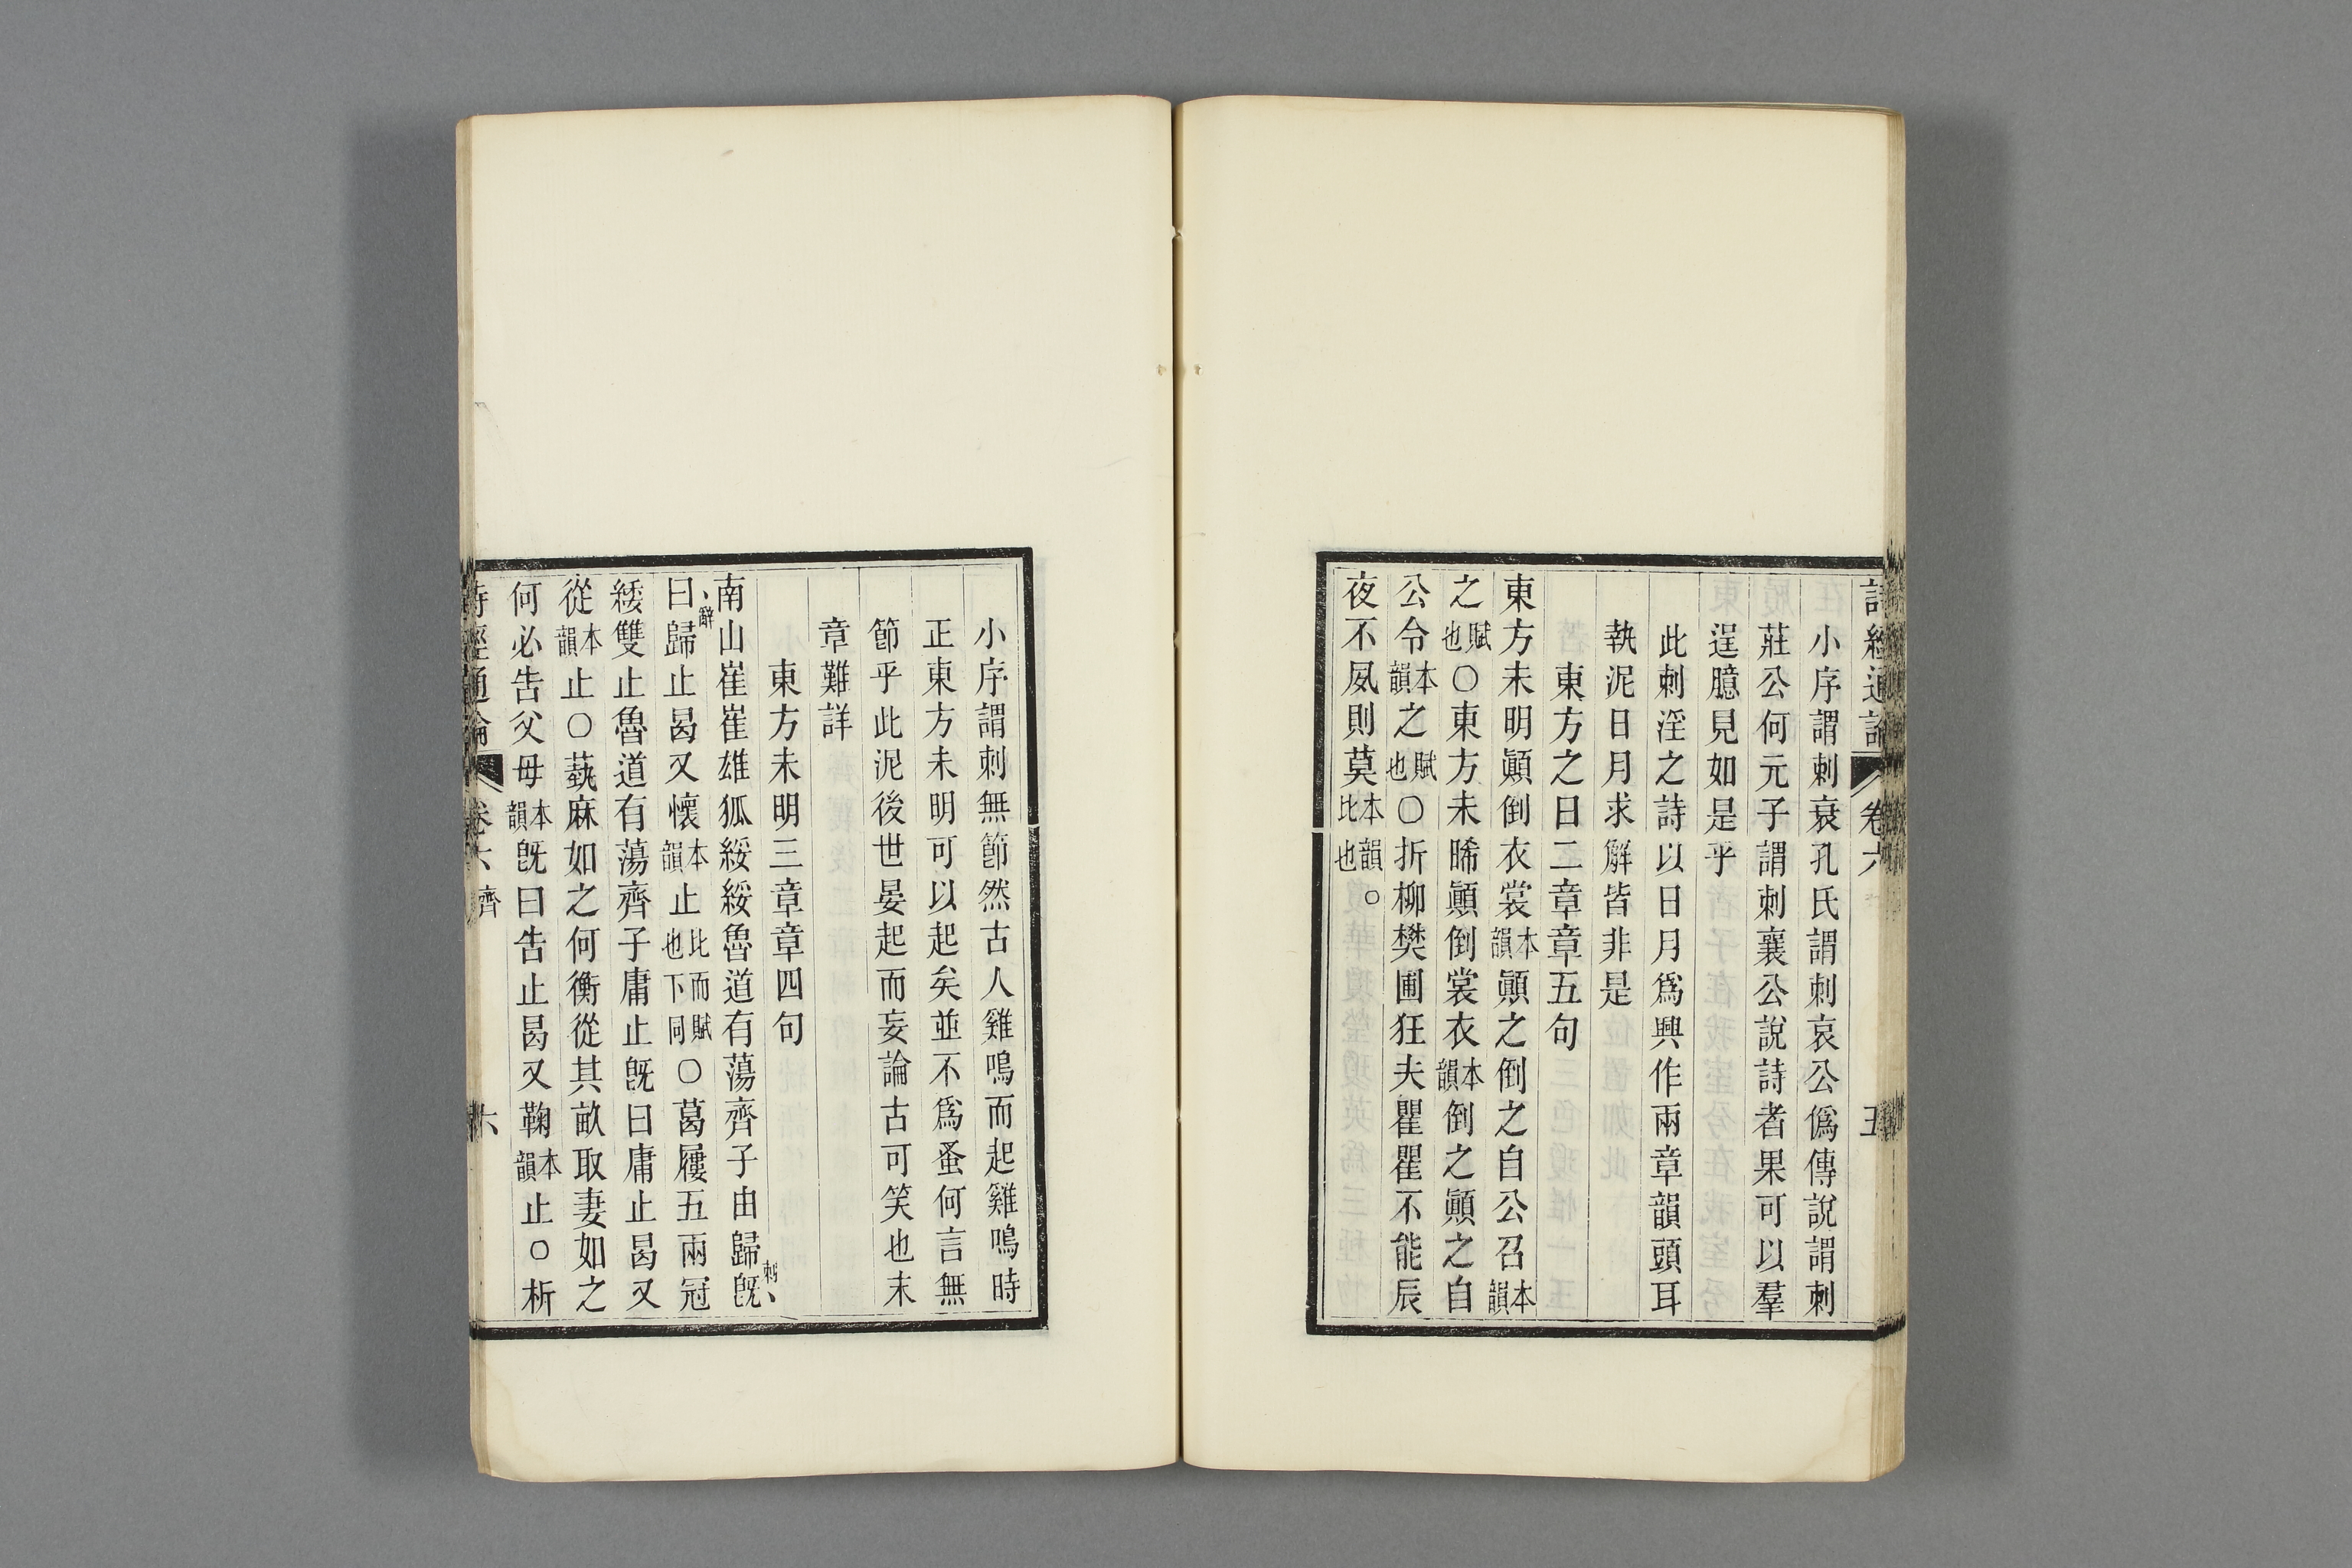 詩經通論 卷六 五
小序謂刺衰孔氏謂刺哀公僞傳說謂刺
莊公何元子謂刺襄公說詩者果可以羣
逞臆見如是乎
此刺淫之詩以日月爲興作兩章韻頭耳
執泥日月求解皆非是
東方之日二章章五句
東方未明顚倒衣裳本韻顚之倒之自公召本韻
之賦也○東方未晞顚倒裳衣本韻倒之顚之自
公令本韻之賦也○折柳樊圃狂夫瞿瞿不能辰
夜不夙則莫本韻比也。
小序謂刺無節然古人雞鳴而起雞鳴時
正東方未明可以起矣並不爲蚤何言無
節乎此泥後世晏起而妄論古可笑也末
章難詳
東方未明三章章四句
南山崔崔雄狐綏綏魯道有蕩齊子由歸旣刺、
曰、辭歸止曷又懷本韻止比而賦也下同○葛屨五兩冠
緌雙止魯道有蕩齊子庸止旣曰庸止曷又
從本韻止○蓺麻如之何衡從其畝取妻如之
何必告父母本韻旣曰告止曷又鞠本韻止○析
詩經通論 卷六 齊 六